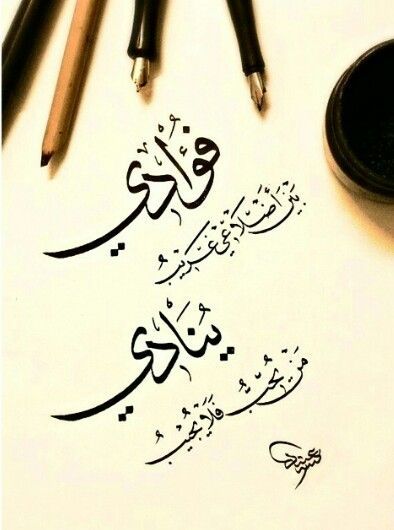 فُؤَادِي
بَيْنَ أَضْلَاعِي غَرِيبُ
يُنَادِي
مَنْ يُحِبُّ فَلَا يُجِيبُ